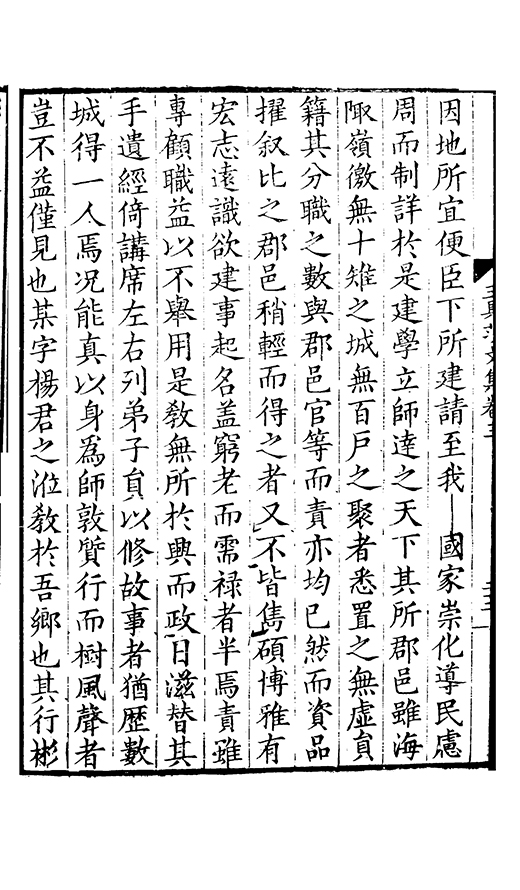 因地所宜便臣下所建請至我國家崇化導民慮
周而制詳於是建學立師達之天下其所郡邑雖海
陬嶺徼無十雉之城無百戸之聚者悉置之無虛員
籍其分職之數與郡邑官等而責亦均已然而資品
擢叙比之郡邑稍輕而得之者又不皆雋碩博雅有
宏志遠識欲建事起名盖窮老而需禄者半焉責雖
專顧職益以不舉用是敎無所於興而政日滋替其
手遺經倚講席左右列弟子員以修故事者猶歴數
城得一人焉况能真以身爲師敦質行而樹風聲者
豈不益僅見也某字楊君之涖敎於吾鄉也其行彬
文集卷三